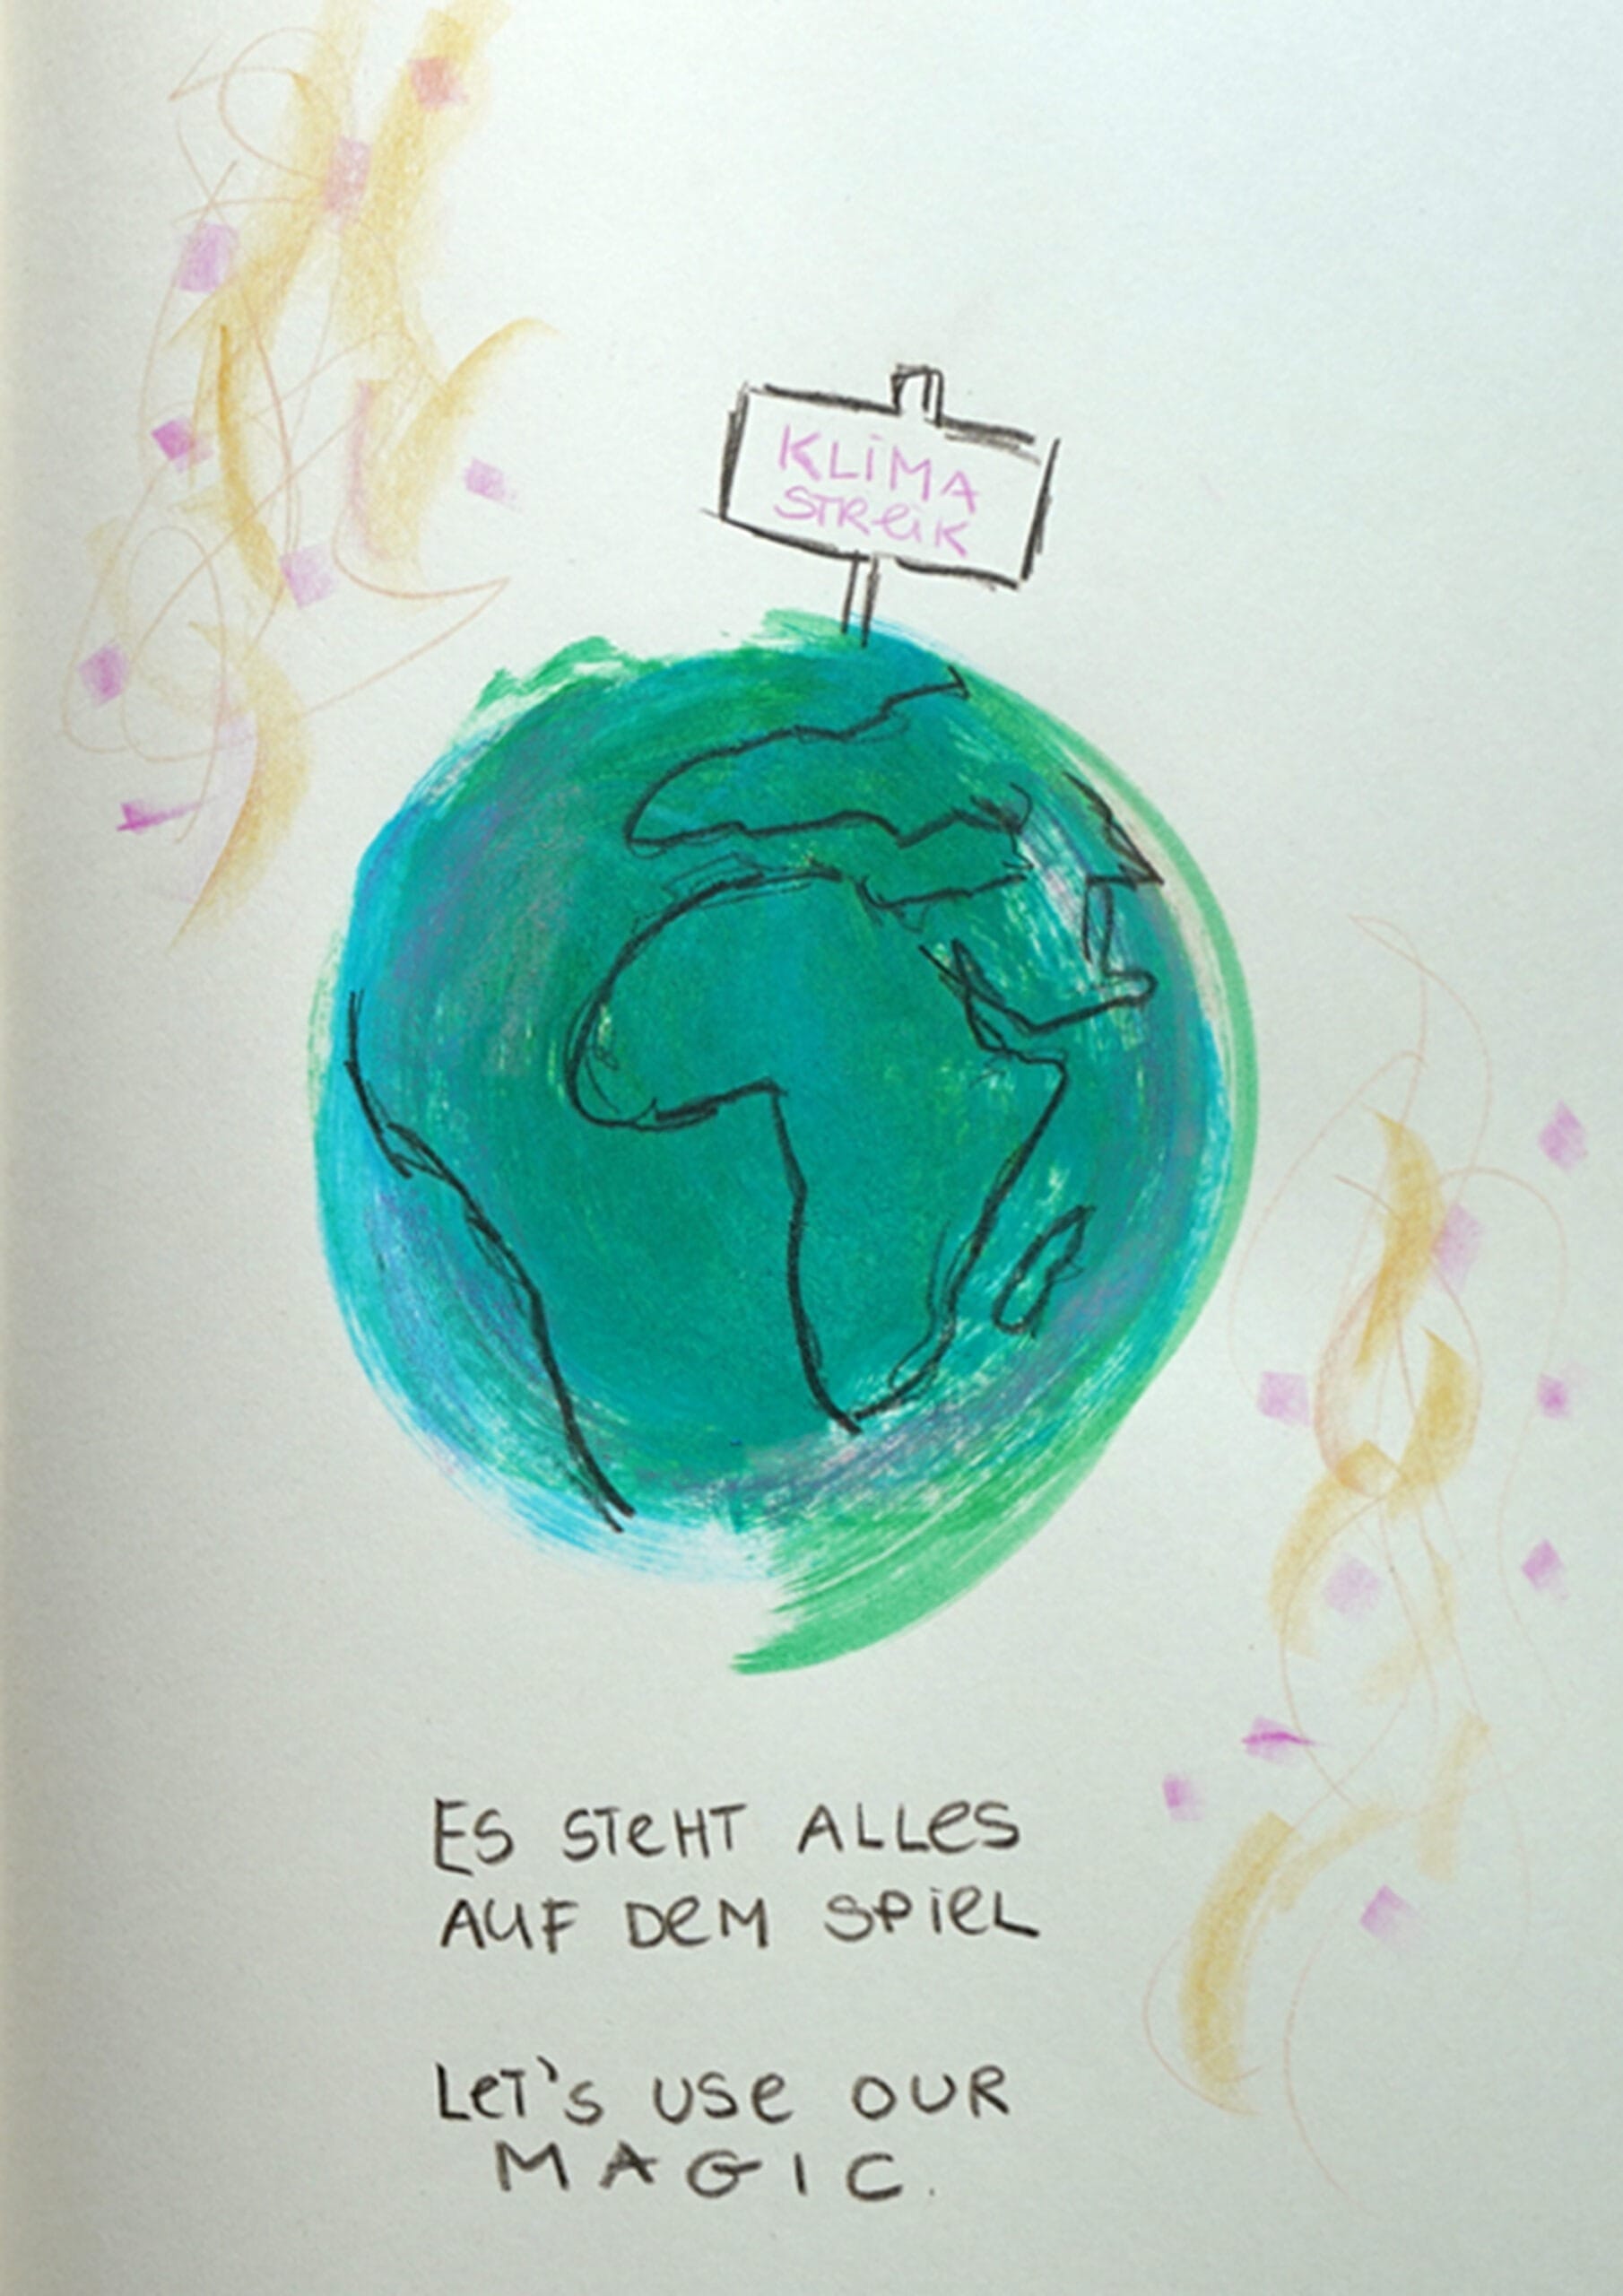 KLiMA
STReiK
ES STeHT ALLeS
AUF DeM SPieL
LeT's USe OUR
MAGIC.